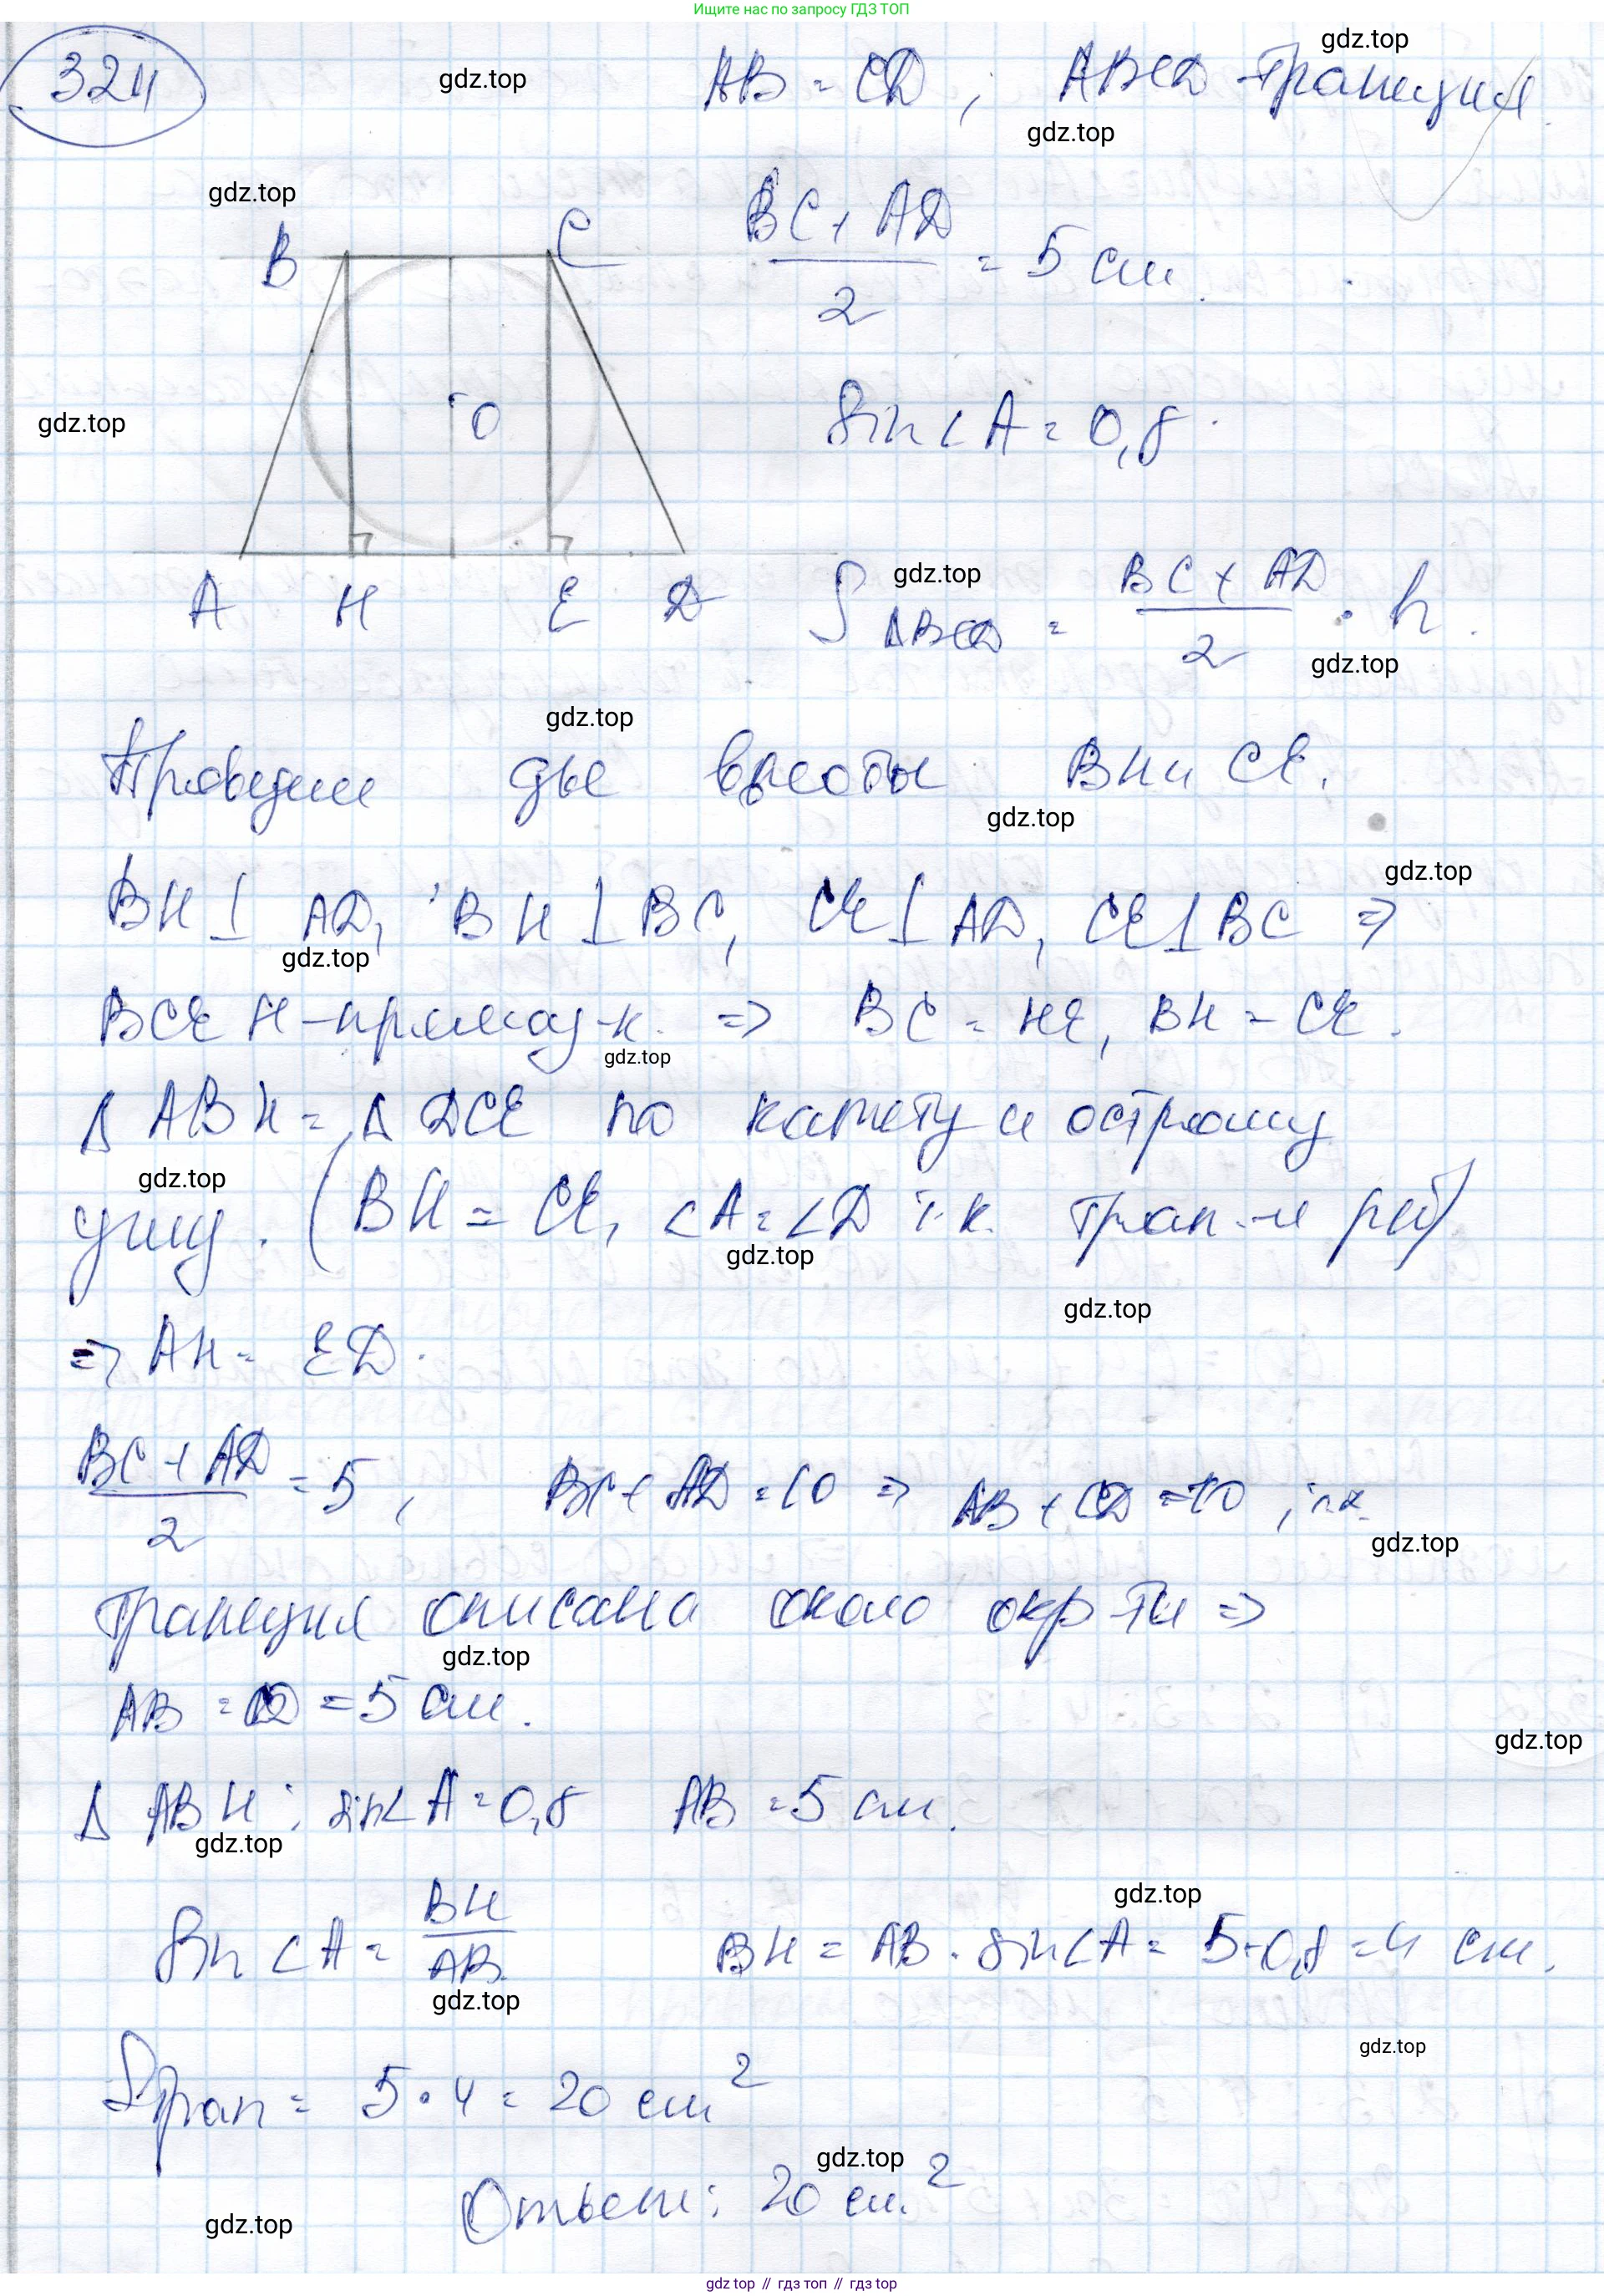 Ищите нас по запросу ГДЗ ТОП
324
AB = CD; ABCD - трапеция
gdz.top
gdz.top
gdz.top
gdz.top
B C
BC + AD / 2 = 5 см
O
sin∠A = 0,8.
gdz.top
A H E D
S ABCD = BC + AD / 2 · h.
gdz.top
gdz.top
gdz.top
Проведем две высоты BH и CE.
gdz.top
gdz.top
BH ⊥ AD, BH ⊥ BC, CE ⊥ AD, CE ⊥ BC ⇒
gdz.top
BCEH - прямоуг-к. ⇒ BC = HE, BH = CE.
gdz.top
Δ ABH = Δ DCE по катету и острому
gdz.top
углу. (BH = CE, ∠A = ∠D т.к. трап-я р/б)
gdz.top
gdz.top
⇒ AH = ED.
BC + AD / 2 = 5, BC + AD = 10 ⇒ AB + CD = 10, т.к.
gdz.top
трапеция описана около окр-ти ⇒
gdz.top
AB = CD = 5 см.
gdz.top
Δ ABH: sin∠A = 0,8 AB = 5 см.
gdz.top
gdz.top
sin∠A = BH / AB BH = AB · sin∠A = 5·0,8 = 4 см.
gdz.top
gdz.top
Sтрап = 5 · 4 = 20 см²
gdz.top
Ответ: 20 см²
gdz.top
gdz top // гдз топ // гдз top